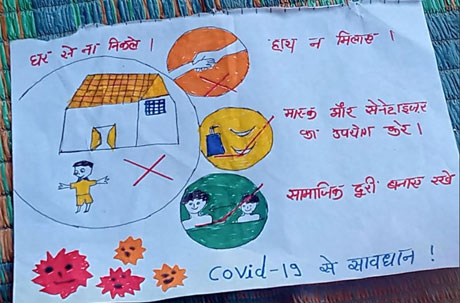 घर से ना निकले ।
हाथ न मिलाए ।
मास्क और सेनेटाइजर
का उपयोग करे ।
सामाजिक दूरी बनाए रखे
Covid-19 से सावधान !